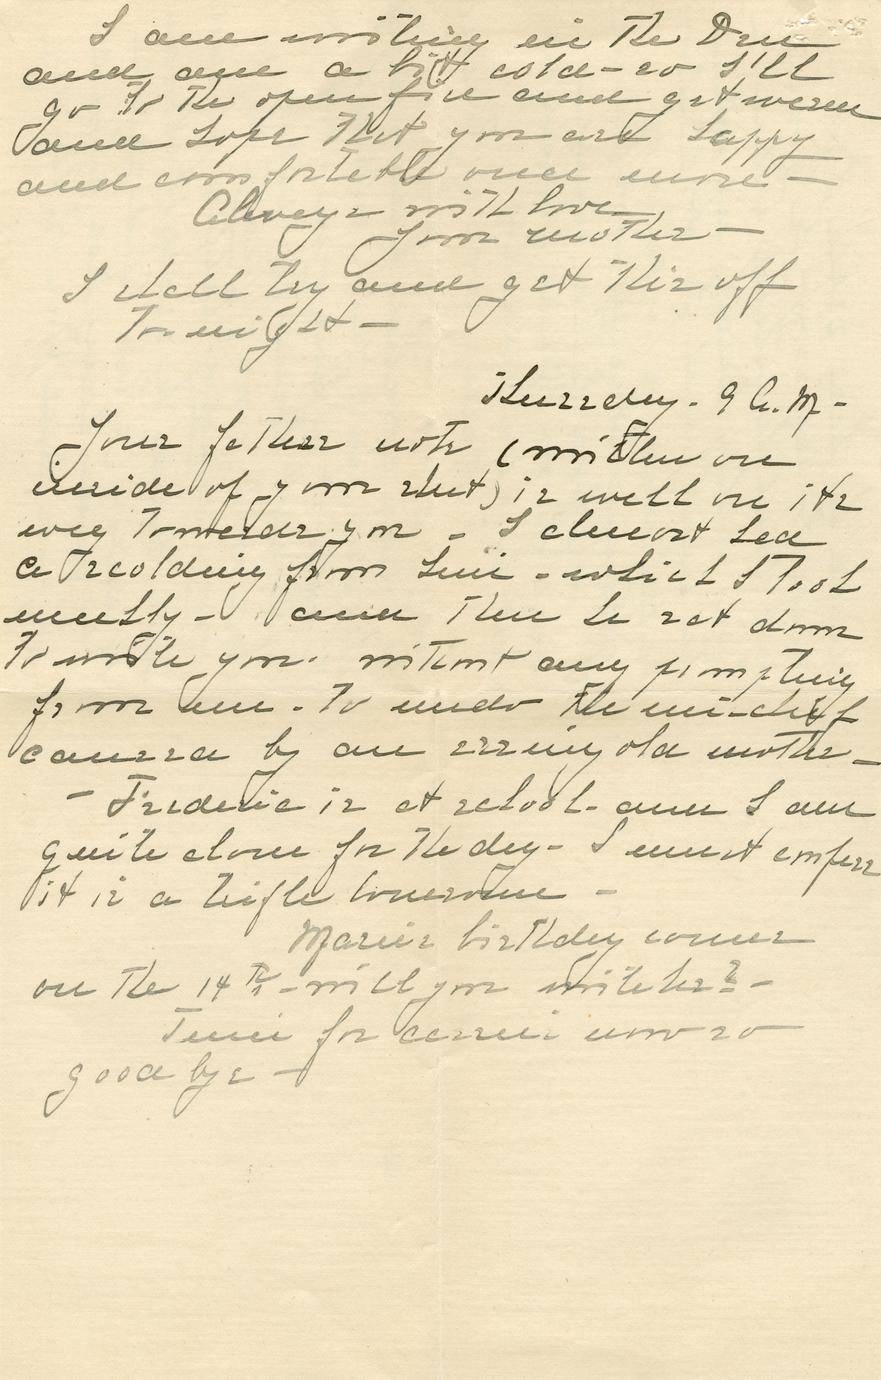 I am writing in the Den
and am a bit cold - so I'll
go to the open fire and get warm
and hope that you are happy
and comfortable once more -
Always with love
Your mother -
I shall try and get this off
To-night -
Thursday - 9 A.M -
Your fathers note (written on
inside of your sheet) is well on its
way towards you - I almost had
a scolding from him - which I took
meekly - and then he sat down
to write you - without any prompting
from me - to undo the mischief
caused by an erring old mother -
- Frederic is at school - and I am
quite alone for the day - I must confess
it is a trifle lonesome -
Maries birthday comes
on the 14th - will you write her? -
Time for carrier now so
good bye -